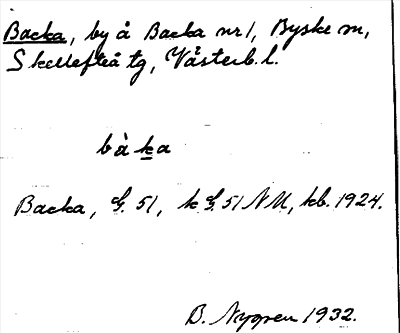 Backa, by å Backa nr 1, Byske sn,
Skellefteå tg, Västerb. l.
bàka
Backa, G. 51, k G. 51 NU, kb. 1924.
B. Nygren 1932.